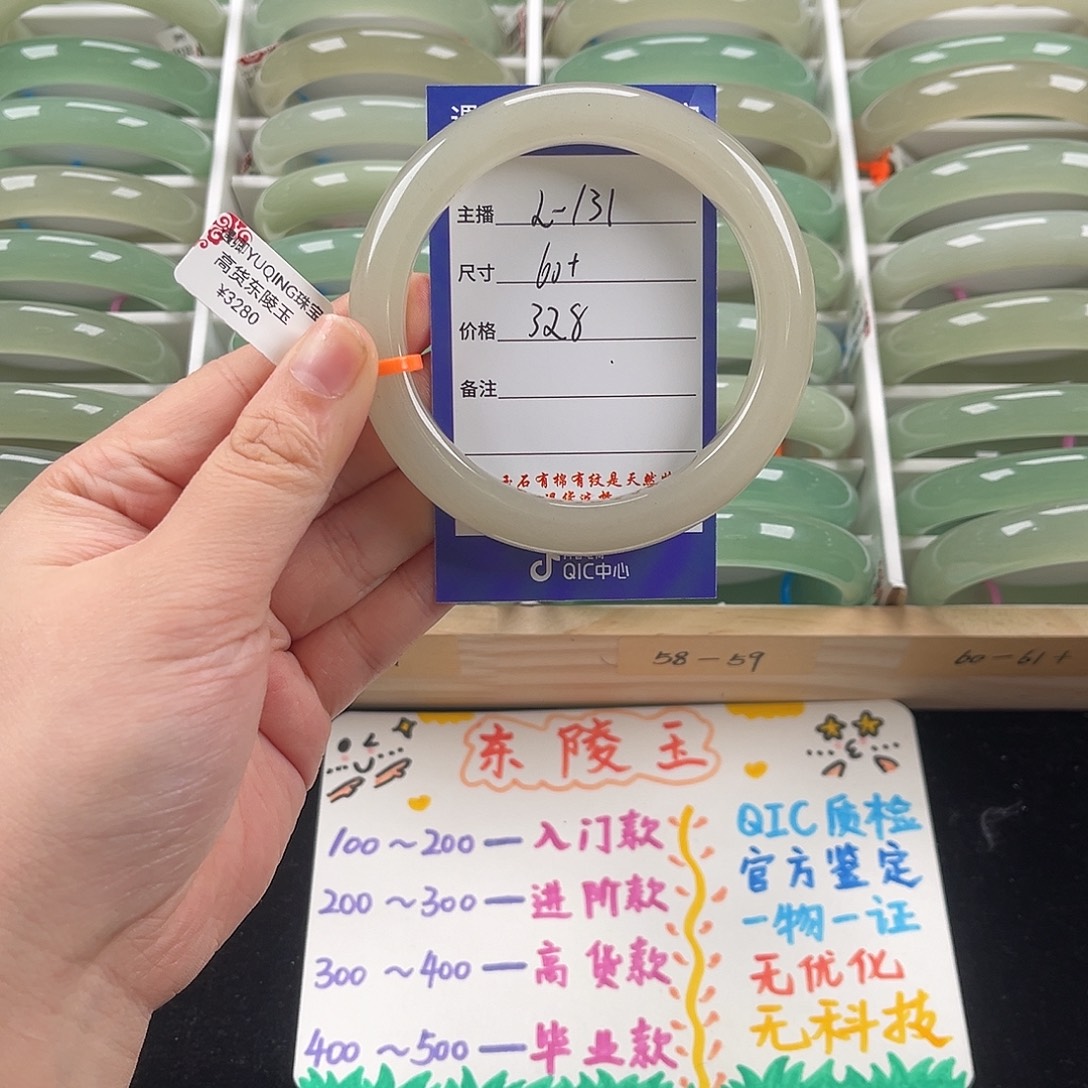 YUQING珠宝
高货东陵玉
¥3280
主播 2-131
尺寸 60+
价格 328
备注
玉石有棉有纹是天然
QIC中心
58-59
60-61+
东陵玉
100~200—入门款
200~300—进阶款
300~400—高货款
400~500—毕业款
QIC质检
官方鉴定
一物一证
无优化
无科技